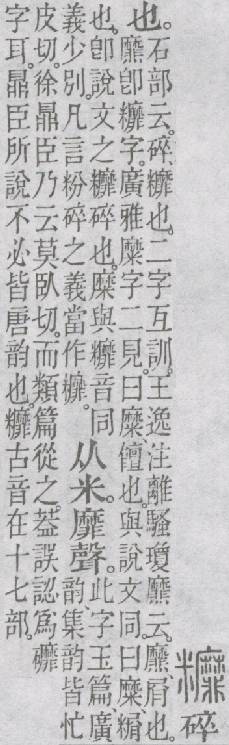 䊳碎
也。
石部云。碎、䊳也。二字互訓。王逸注離騷瓊爢云。爢、屑也。
爢卽䊳字。廣雅糜字二見。曰糜、饘也。與說文同。曰糜、糏
也。卽說文之䊳碎也。糜與䊳音同
義少別。凡言粉碎之義當作䊳。
从米。靡聲。
此字玉篇、廣
韵、集韵皆忙
皮切。徐鼎臣乃云莫臥切。而類篇從之。葢誤認爲䃺
字耳。鼎臣所說不必皆唐韵也。䊳古音在十七部。